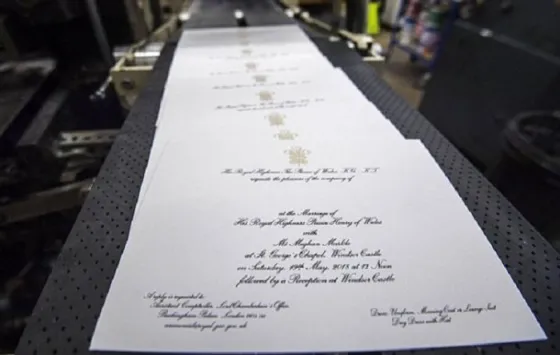 His Royal Highness The Prince of Wales, K.G., K.T.
requests the pleasure of the company of
at the Marriage of
His Royal Highness Prince Henry of Wales
with
Ms. Meghan Markle
at St. George's Chapel, Windsor Castle
on Saturday, 19th May, 2018 at 12 Noon
followed by a Reception at Windsor Castle
A reply is requested to:
Assistant Comptroller, Lord Chamberlain's Office,
Buckingham Palace, London
Dress: Uniform, Morning Coat or Lounge Suit
Day Dress with Hat